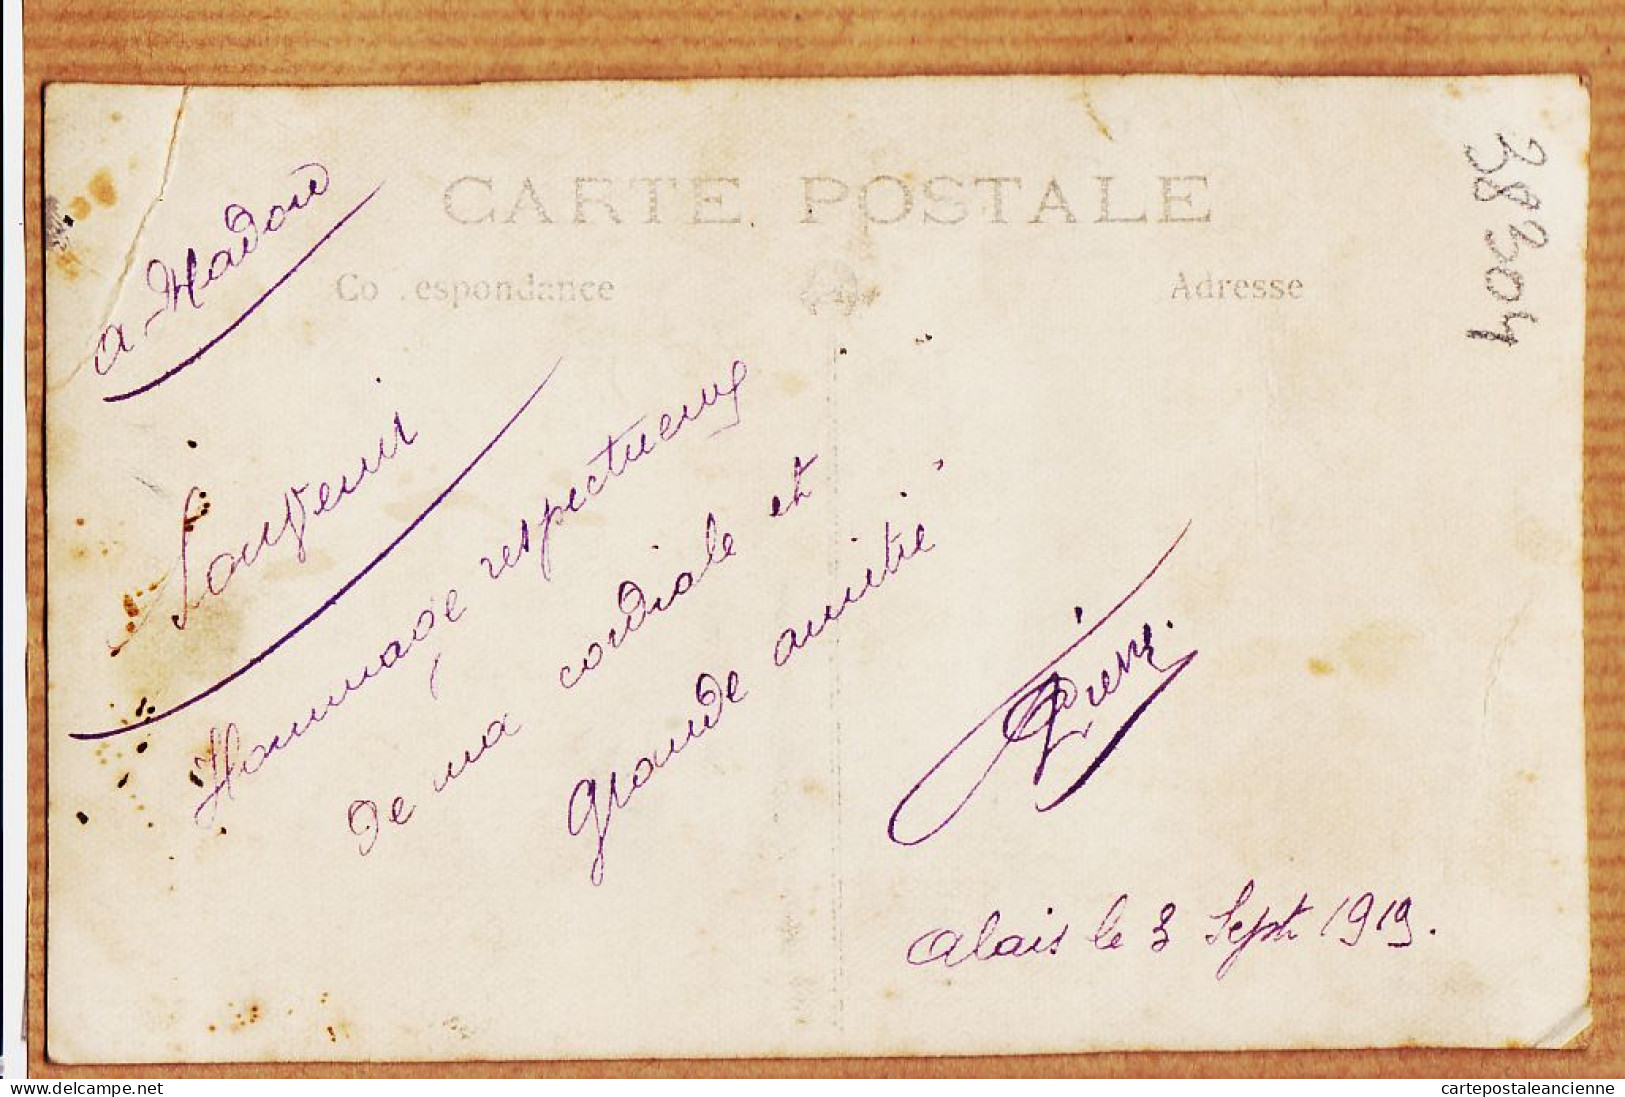 CARTE POSTALE
Co.espondance
Adresse
38304
a Madou
Souvenir
Hommage respectueux
de ma cordiale et
grande amitié
Alais le 3 Sept 1919.
delcampe.net
cartepostaleancienne